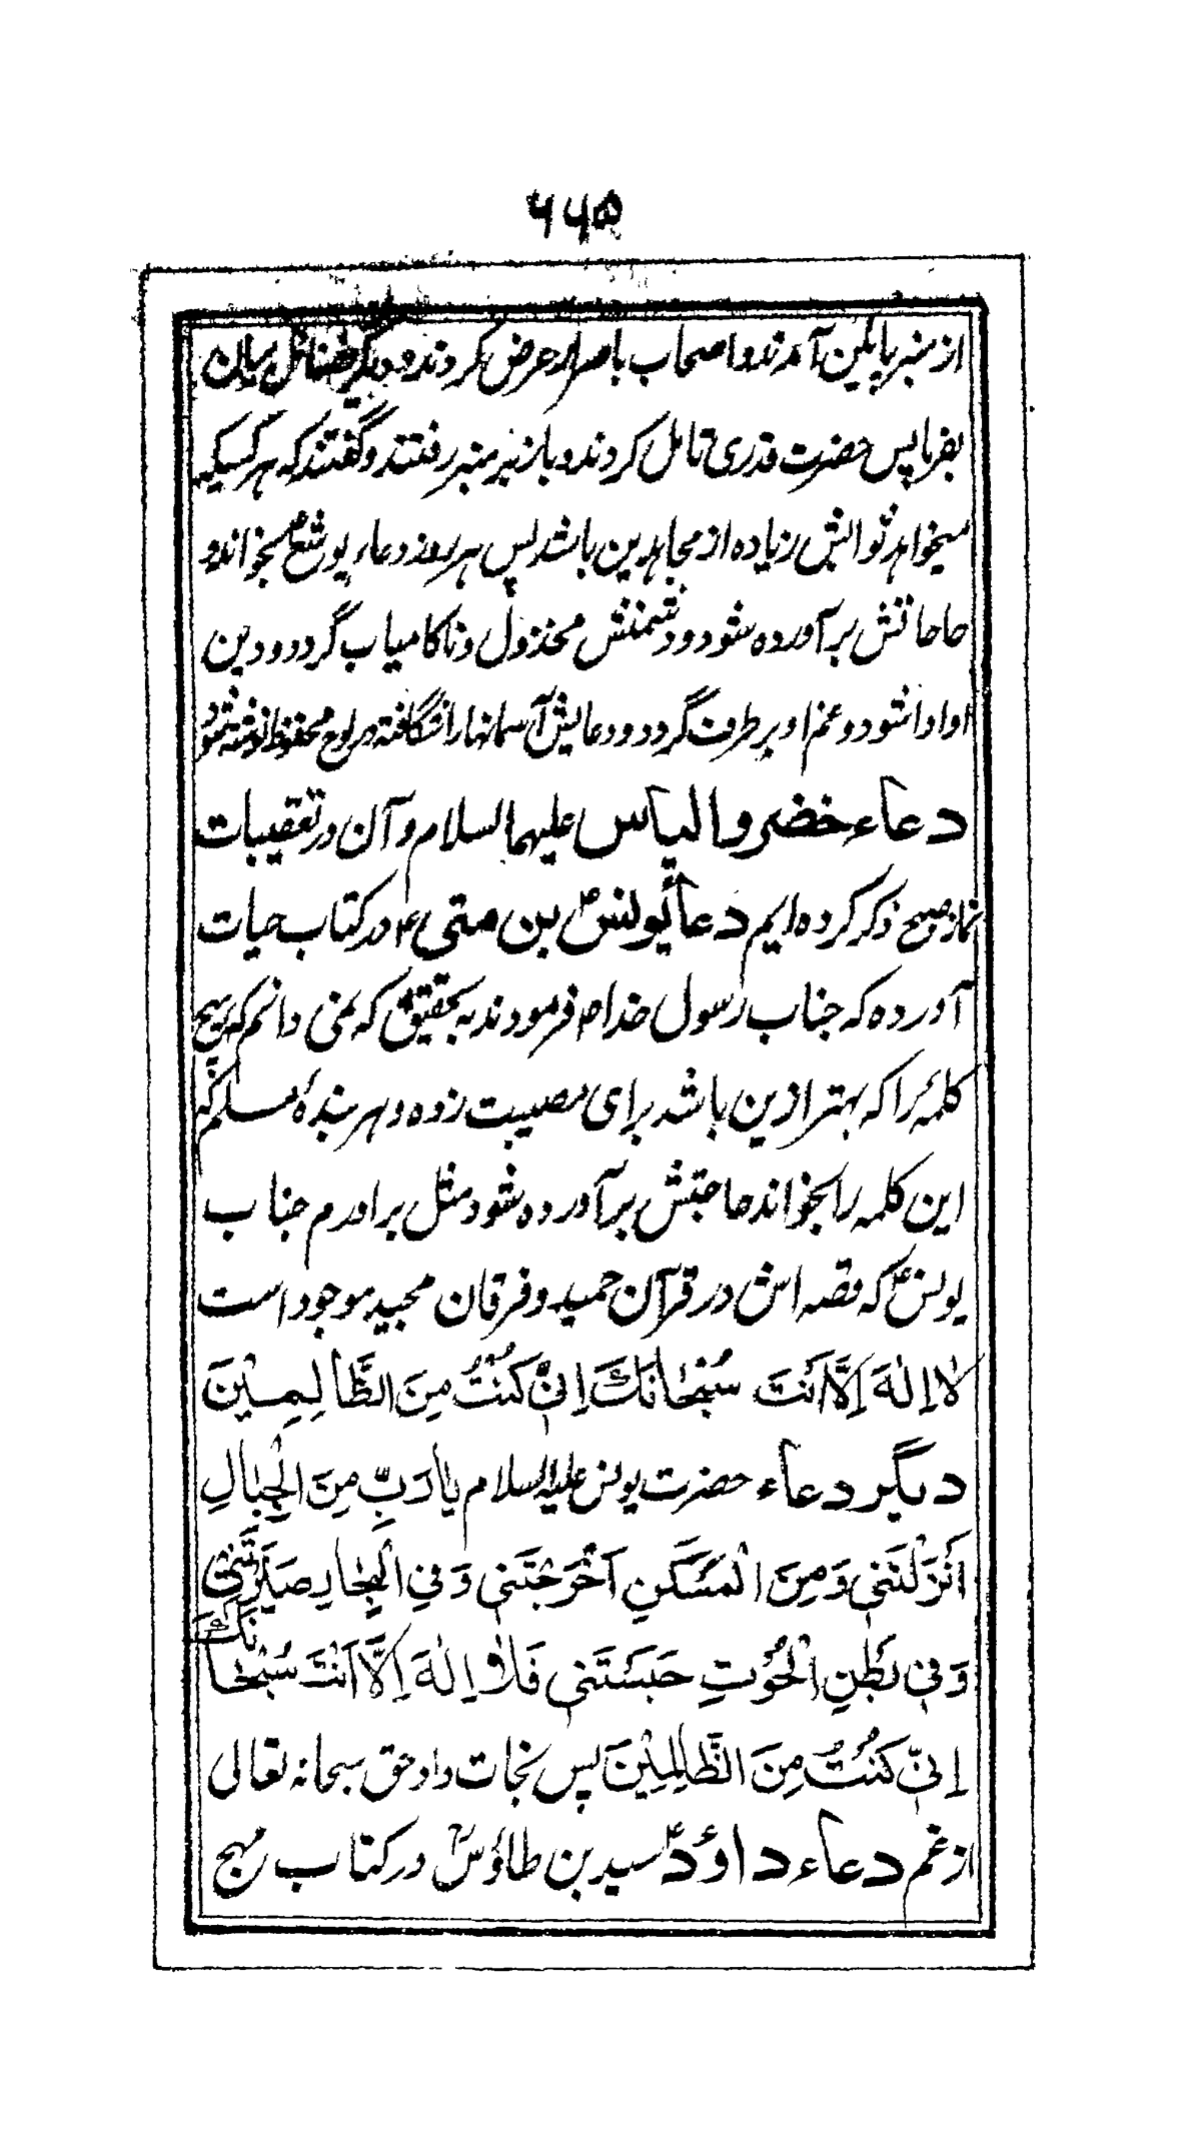 ۶۶۵
از منبر پایین آمدند و اصحاب باصرار عرض کردند و دیگر فضائل بیان
بفرما پس حضرت قدری تامل کردند و باز نیز منبر رفتند و گفتند که هر کسیکه
میخواهد ثوابش زیاده از مجاهدین باشد پس هر روز دعاء یوشعؑ بخواند و
حاجاتش برآورده شود و دشمنش مخذول و ناکامیاب گردد و دین
او ادا شود و غم او برطرف گردد و دعایش آسمانها را شگافته در لوح محفوظ نوشته شود
دعاء خضر و الیاس علیهما السلام و آن در تعقیبات
نماز صبح ذکر کرده ایم دعاء یونسؑ بن متی ع در کتاب حیات
آورده که جناب رسول خدا ص فرمودند به تحقیق که نمی دانم که هیچ
کلمهٔ را که بهتر ازین باشد برای مصیبت زده و هر بندهٔ مسلم که
این کلمه را بخواند حاجتش برآورده شود مثل برادرم جناب
یونسؑ که قصه اش در قرآن حمید و فرقان مجید موجود است
لَا اِلٰهَ اِلَّا اَنْتَ سُبْحَانَكَ اِنِّی كُنْتُ مِنَ الظَّالِمِیْنَ
دیگر دعاء حضرت یونس علیه السلام یَا رَبِّ مِنَ الْجِبَالِ
اَنْزَلْتَنِی وَ مِنَ الْمَسْكَنِ اَخْرَجْتَنِی وَ فِی الْبِحَارِ صَیَّرْتَنِی
وَ فِی بَطْنِ الْحُوْتِ حَبَسْتَنِی فَلَا اِلٰهَ اِلَّا اَنْتَ سُبْحَانَكَ
اِنِّی كُنْتُ مِنَ الظَّالِمِیْنَ پس نجات داد حق سبحانه تعالی
از غم دعاء داؤدؑ سید بن طاؤسؒ در کتاب مهج